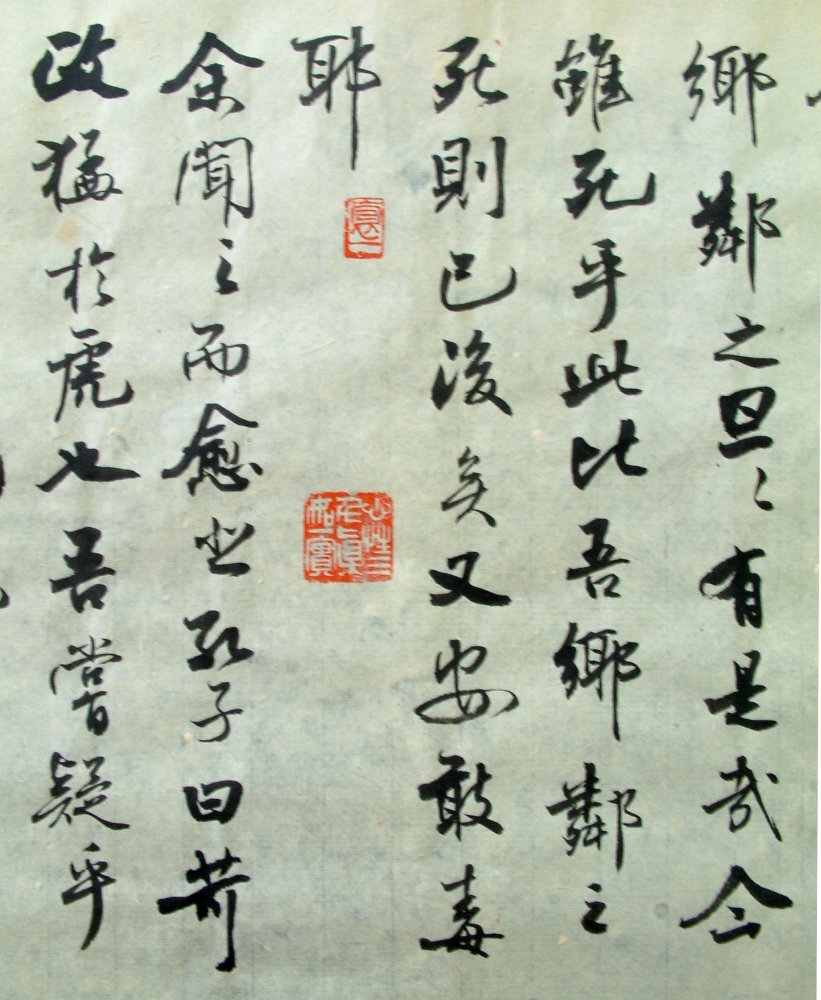 鄉鄰之旦〻有是哉今
雖死乎此比吾鄉鄰之
死則已後矣又安敢毒
耶
余聞之而愈悲孔子曰苛
政猛於虎也吾嘗疑乎